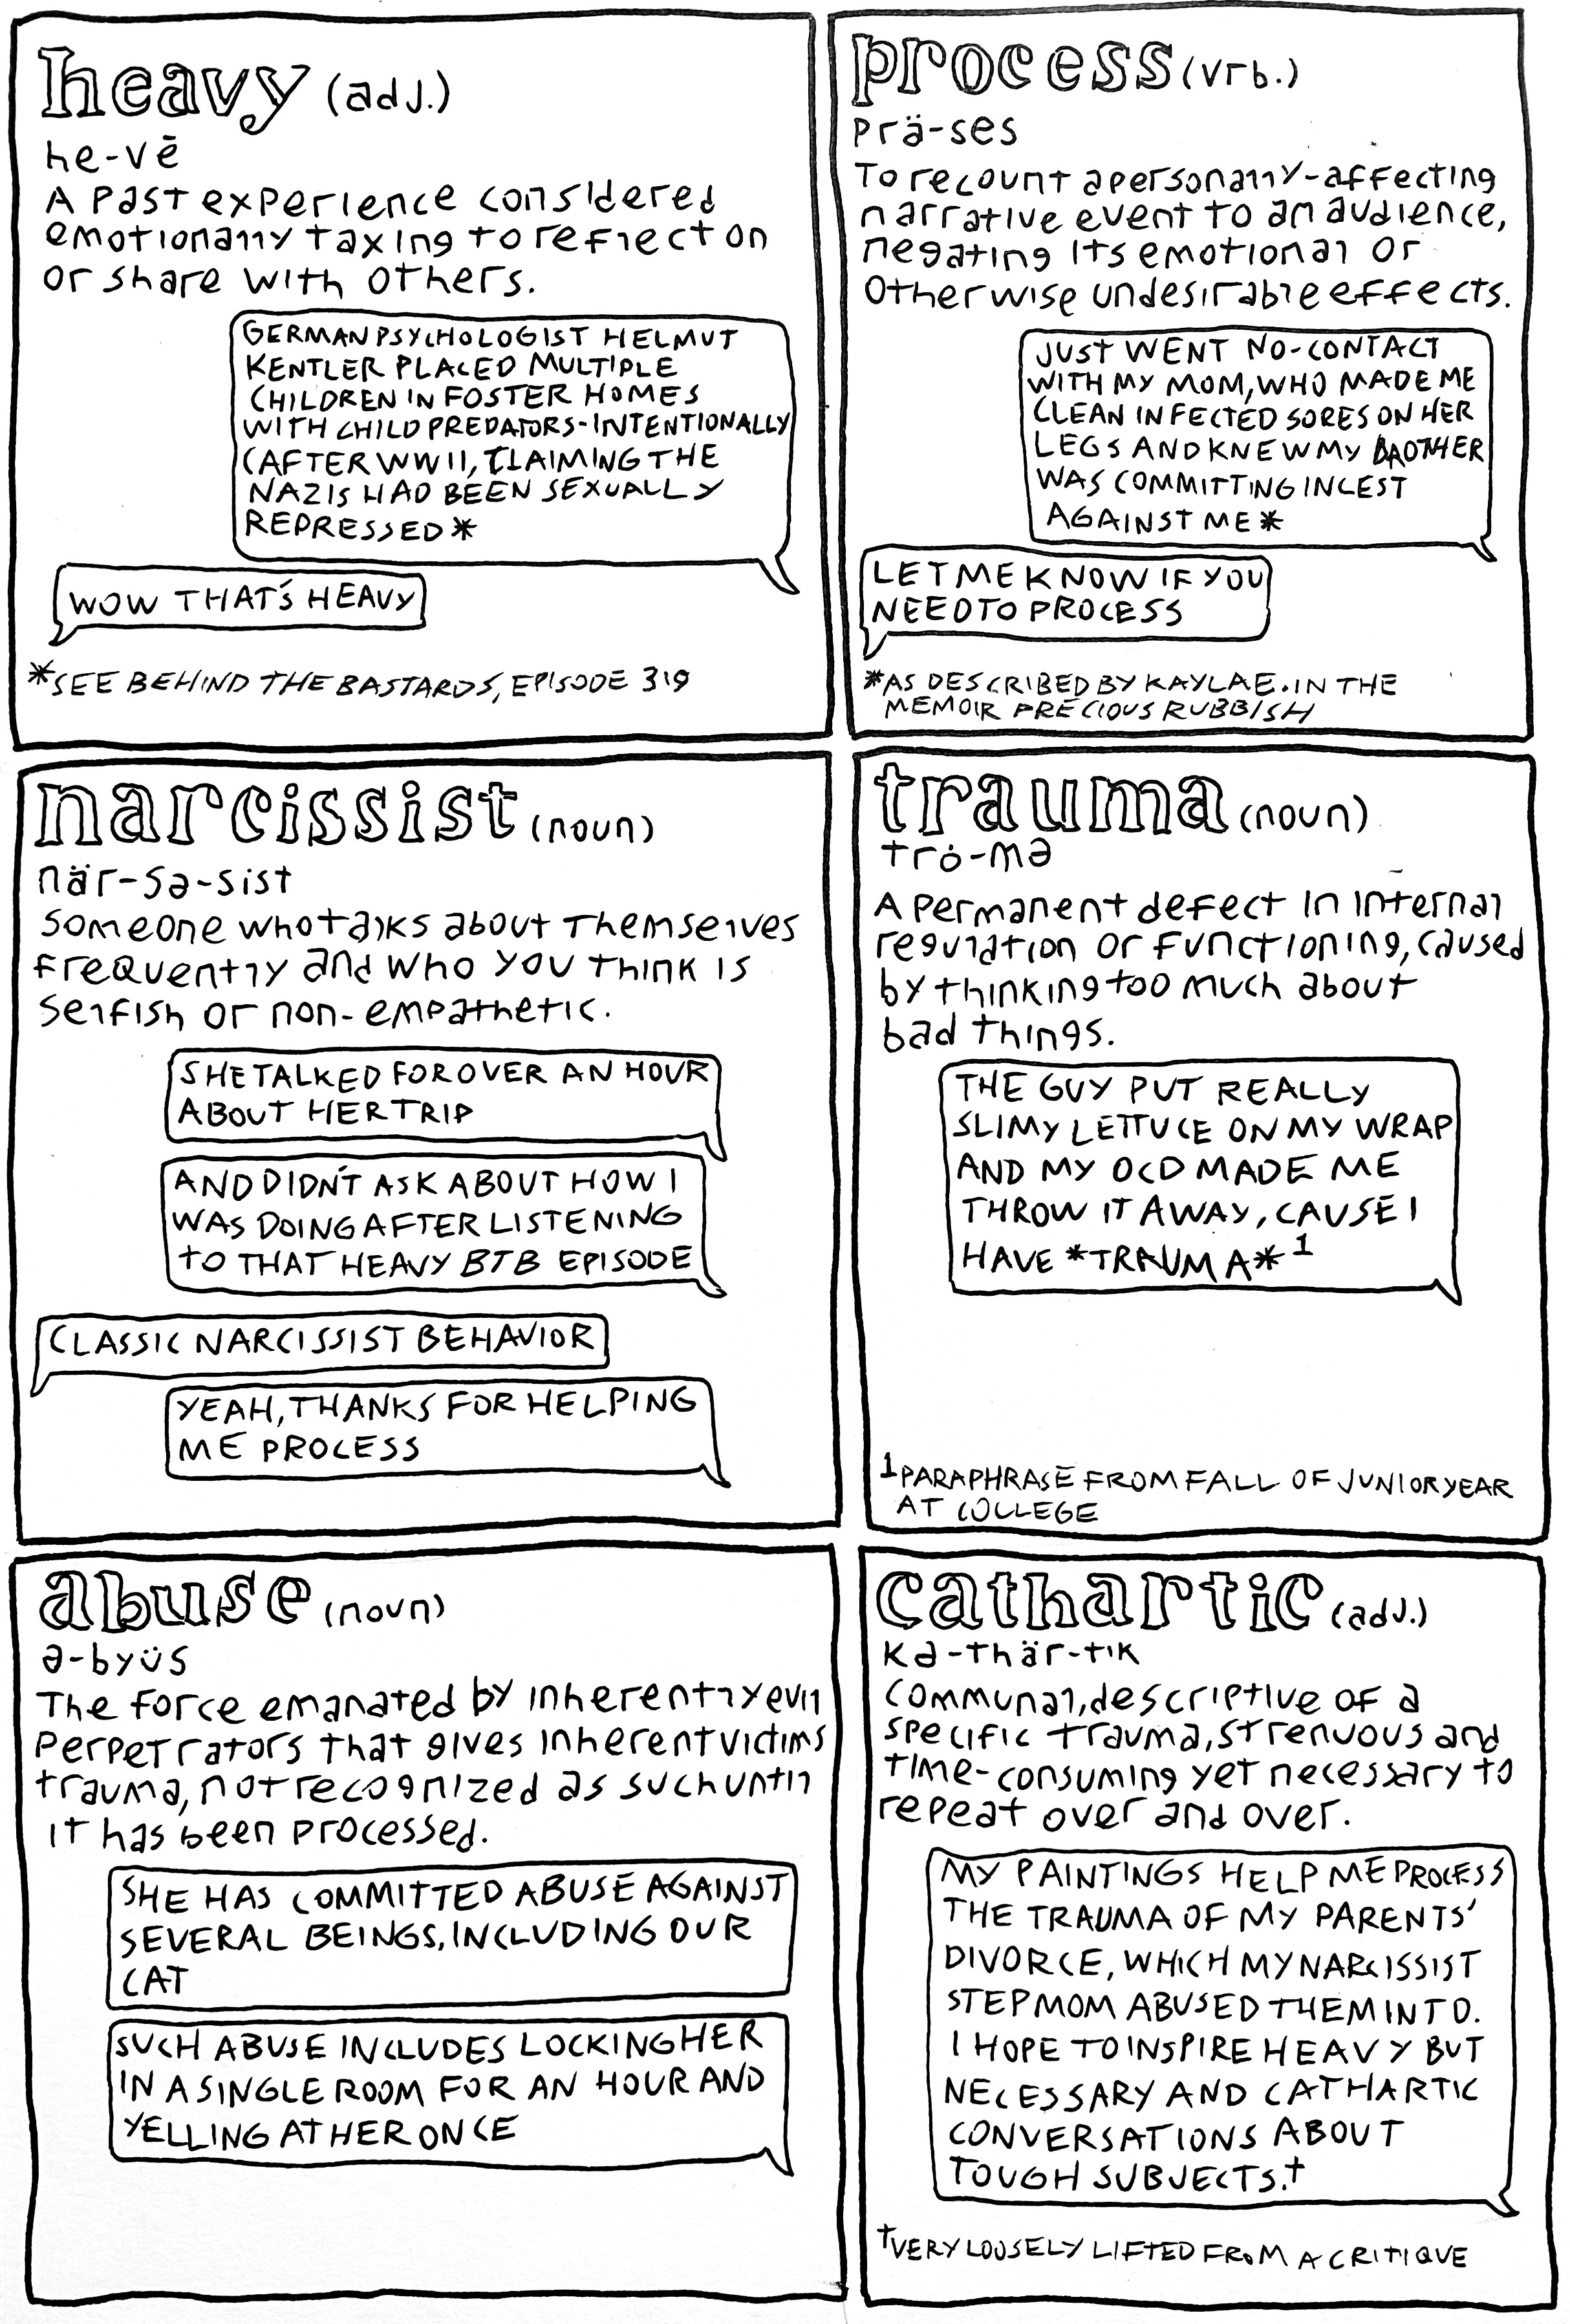 heavy (adj.)
he-vē
A past experience considered
emotionally taxing to reflect on
or share with others.
GERMAN PSYCHOLOGIST HELMUT
KENTLER PLACED MULTIPLE
CHILDREN IN FOSTER HOMES
WITH CHILD PREDATORS-INTENTIONALLY
(AFTER WWII, CLAIMING THE
NAZIS HAD BEEN SEXUALLY
REPRESSED*
WOW THAT'S HEAVY
*SEE BEHIND THE BASTARDS, EPISODE 319
process (vrb.)
prä-ses
To recount a personally-affecting
narrative event to an audience,
negating its emotional or
otherwise undesirable effects.
JUST WENT NO-CONTACT
WITH MY MOM, WHO MADE ME
CLEAN INFECTED SORES ON HER
LEGS AND KNEW MY BROTHER
WAS COMMITTING INCEST
AGAINST ME*
LET ME KNOW IF YOU
NEED TO PROCESS
*AS DESCRIBED BY KAYLA E. IN THE
MEMOIR PRECIOUS RUBBISH
narcissist (noun)
när-sə-sist
Someone who talks about themselves
frequently and who you think is
selfish or non-empathetic.
SHE TALKED FOR OVER AN HOUR
ABOUT HER TRIP
AND DIDN'T ASK ABOUT HOW I
WAS DOING AFTER LISTENING
TO THAT HEAVY BTB EPISODE
CLASSIC NARCISSIST BEHAVIOR
YEAH, THANKS FOR HELPING
ME PROCESS
trauma (noun)
trȯ-mə
A permanent defect in internal
regulation or functioning, caused
by thinking too much about
bad things.
THE GUY PUT REALLY
SLIMY LETTUCE ON MY WRAP
AND MY OCD MADE ME
THROW IT AWAY, CAUSE I
HAVE *TRAUMA*¹
¹PARAPHRASE FROM FALL OF JUNIOR YEAR
AT COLLEGE
abuse (noun)
ə-byüs
The force emanated by inherently evil
perpetrators that gives inherent victims
trauma, not recognized as such until
it has been processed.
SHE HAS COMMITTED ABUSE AGAINST
SEVERAL BEINGS, INCLUDING OUR
CAT
SUCH ABUSE INCLUDES LOCKING HER
IN A SINGLE ROOM FOR AN HOUR AND
YELLING AT HER ONCE
cathartic (adj.)
kə-thär-tik
Communal, descriptive of a
specific trauma, strenuous and
time-consuming yet necessary to
repeat over and over.
MY PAINTINGS HELP ME PROCESS
THE TRAUMA OF MY PARENTS'
DIVORCE, WHICH MY NARCISSIST
STEPMOM ABUSED THEM INTO.
I HOPE TO INSPIRE HEAVY BUT
NECESSARY AND CATHARTIC
CONVERSATIONS ABOUT
TOUGH SUBJECTS.†
†VERY LOOSELY LIFTED FROM A CRITIQUE